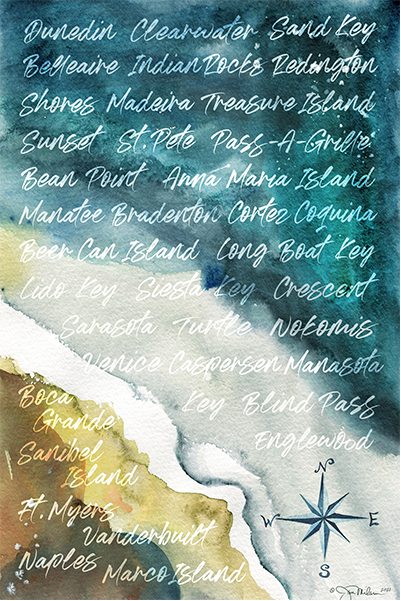 Dunedin Clearwater Sand Key
Belleaire Indian Rocks Redington
Shores Madeira Treasure Island
Sunset St. Pete Pass-A-Grille
Bean Point Anna Maria Island
Manatee Bradenton Cortez Coquina
Beer Can Island Long Boat Key
Lido Key Siesta Key Crescent
Sarasota Turtle Nokomis
Venice Caspersen Manasota
Boca Key Blind Pass
Grande Englewood
Sanibel
Island
Ft. Myers
Vanderbuilt
Naples
Marco Island
N
W E
S
©